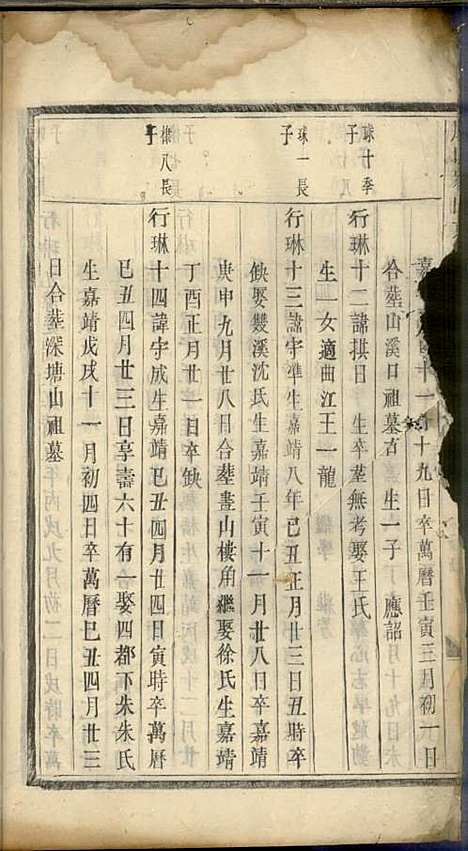 嘉十一月十九日卒萬曆壬寅三月初一日
合塟山溪口祖墓右 生一子 應詔
球十季子
行琳十二諱拱日 生卒塟無考娶王氏
生一女適曲江王一龍
球一長子
行琳十三諱宇準生嘉靖八年己丑正月廿三日丑時卒
缺娶雙溪沈氏生嘉靖壬寅十一月廿八日卒嘉靖
庚申九月廿八日合塟畫山樓角繼娶徐氏生嘉靖
丁酉正月廿一日卒缺
八長子
行琳十四諱宇成生嘉靖己丑四月廿四日寅時卒萬曆
己丑四月廿三日享壽六十有一娶四都下朱朱氏
生嘉靖戊戌十一月初四日卒萬曆己丑四月廿三
日合塟深塘山祖墓